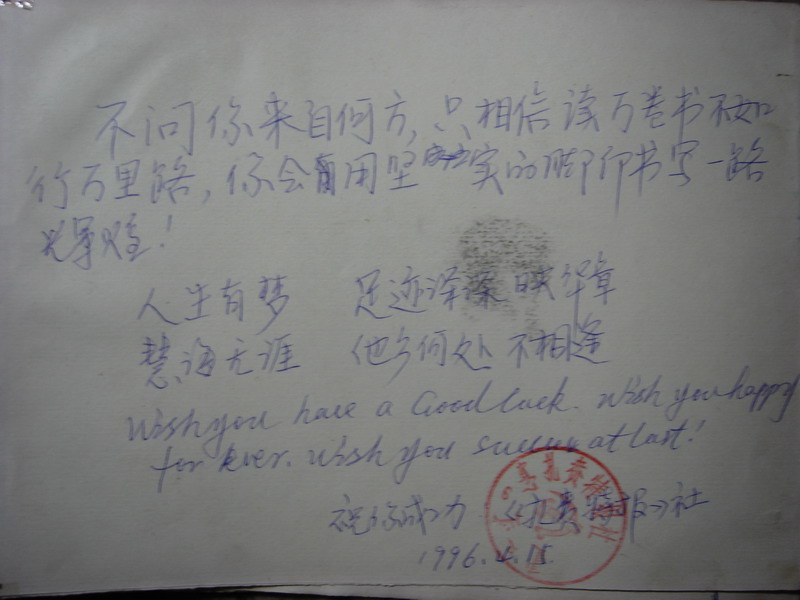 不问你来自何方,只相信读万卷书不如
行万里路,你会用坚实的脚印书写一路
光辉!
人生有梦 足迹深深映华章
慧海无涯 他乡何处不相逢
Wish you have a Good luck. Wish you happy
for ever. Wish you success at last!
祝你成功 《报》社
1996.4.15.